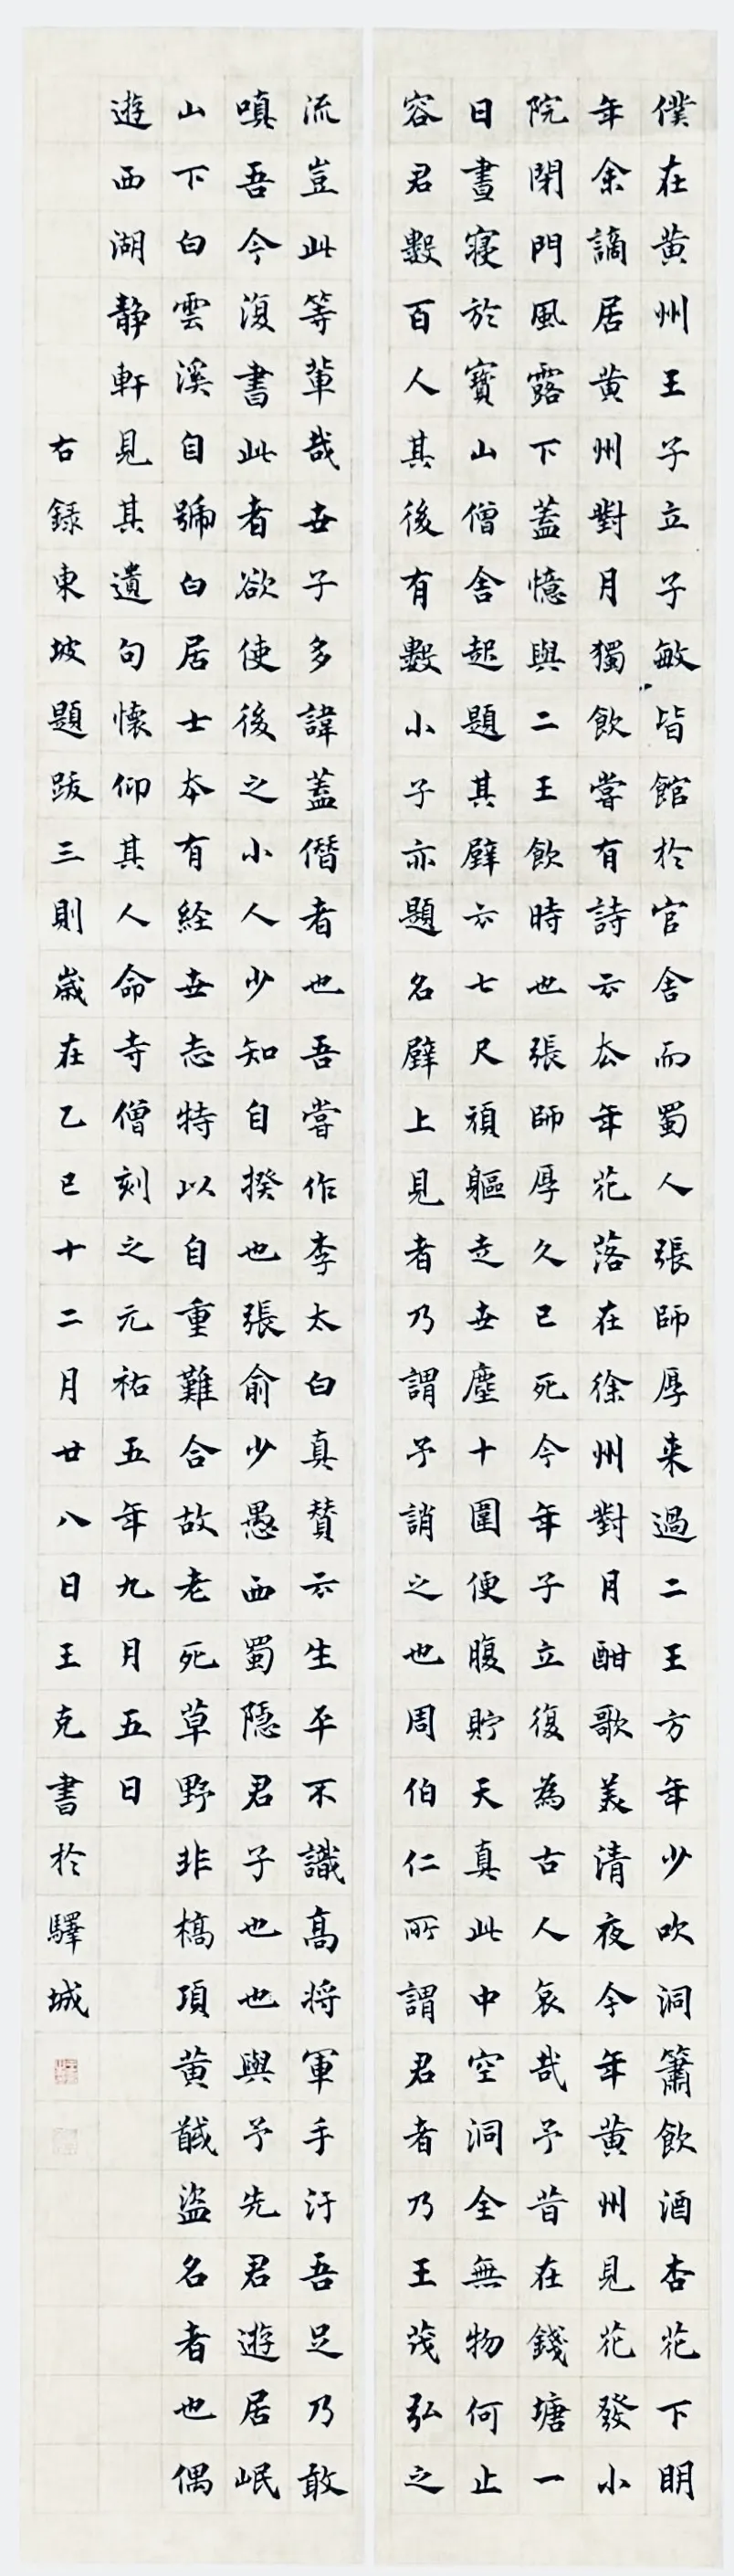 僕在黄州王子立子敏皆館於官舍而蜀人張師厚来過二王方年少吹洞簫飲酒杏花下明
年余謫居黄州對月獨飲嘗有詩云去年花落在徐州對月酣歌美清夜今年黄州見花發小
院閉門風露下蓋憶與二王飲時也張師厚久已死今年子立復為古人哀哉予昔在錢塘一
日晝寝於寳山僧舍起題其壁云七尺頑軀走世塵十圍便腹貯天真此中空洞全無物何止
容君數百人其後有數小子亦題名壁上見者乃謂予誚之也周伯仁所謂君者乃王茂弘之
流豈此等輩哉世子多諱蓋僭者也吾嘗作李太白真贊云生平不識高将軍手汙吾足乃敢
嗔吾今復書此者欲使後之小人少知自揆也張俞少愚西蜀隱君子也也與予先君遊居岷
山下白雲溪自號白居士本有経世志特以自重難合故老死草野非槁項黄馘盜名者也偶
遊西湖静軒見其遺句懐仰其人命寺僧刻之元祐五年九月五日
右録東坡題跋三則歳在乙巳十二月廿八日王克書於驛城